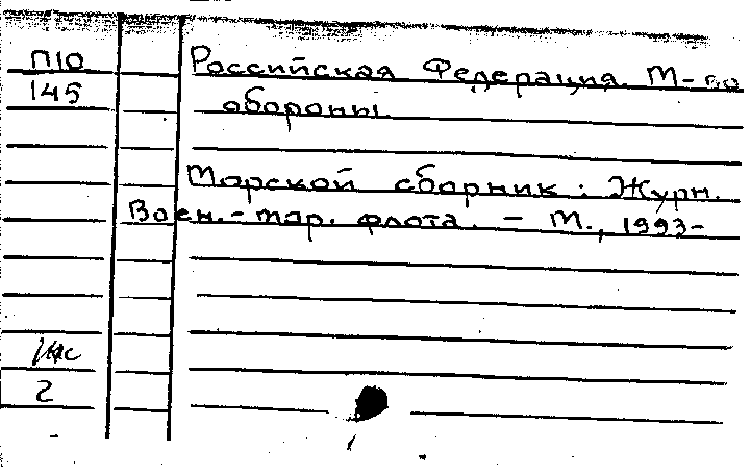 П10 Российская Федерация. М-во
145 обороны.
Морской сборник : Журн.
Воен.-мор. флота. – М., 1993-
2